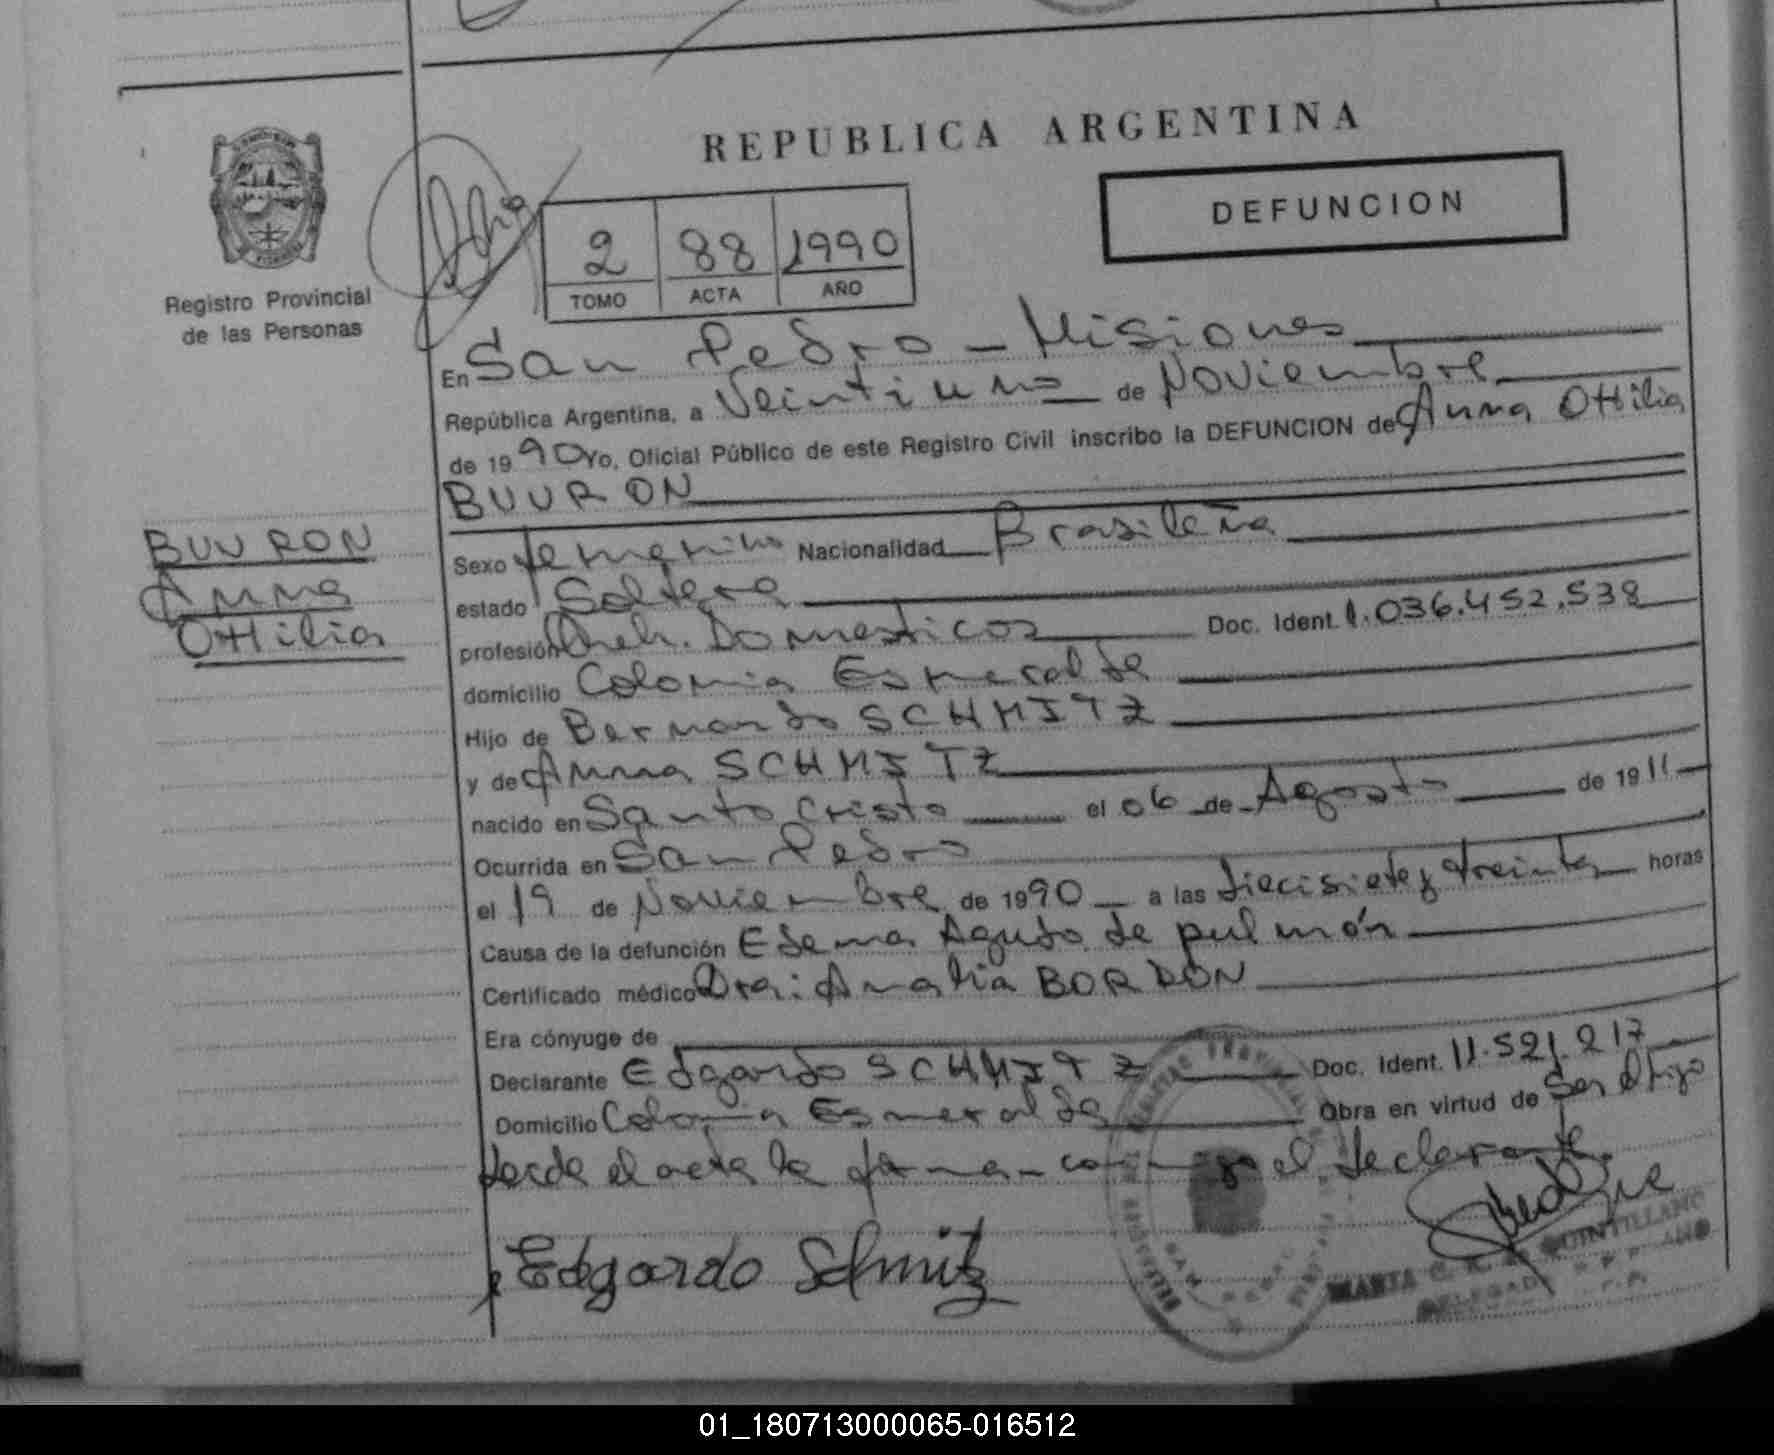 REPUBLICA ARGENTINA
DEFUNCION
2 88 1990
TOMO ACTA AÑO
Registro Provincial
de las Personas
En San Pedro - Misiones
República Argentina, a Veintiuno de Noviembre
de 1990 Yo, Oficial Público de este Registro Civil inscribo la DEFUNCION de Anna Ottilia
BUURON
BUURON
Anna
Ottilia
Sexo femenino Nacionalidad Brasileña
estado Soltera
profesión Queh. Domesticos Doc. Ident. 1.036.452.538
domicilio Colonia Esmeralda
Hijo de Bernardo SCHMITZ
y de Anna SCHMITZ
nacido en Santo Cristo el 06 de Agosto de 1911
Ocurrida en San Pedro
el 19 de Noviembre de 1990 a las diecisiete y treinta horas
Causa de la defunción Edema Agudo de pulmón
Certificado médico Dra: Amalia BORDON
Era cónyuge de
Declarante Edgardo SCHMITZ Doc. Ident. 11.521.217
Domicilio Colonia Esmeralda Obra en virtud de Ser Hijo
Leida el acta la firma conmigo el declarante.
Edgardo Schmitz
MARTA QUINTILLANO